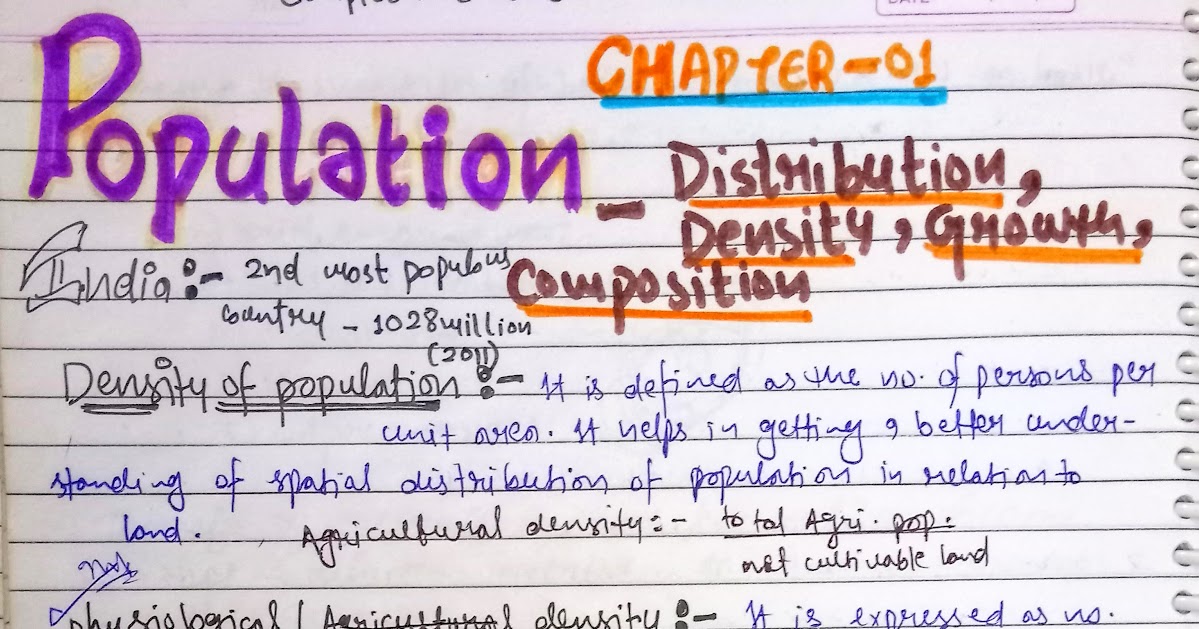 CHAPTER-01
Population - Distribution,
Density, Growth,
Composition
India :- 2nd most populous
country - 1028 million
(2011)
Density of population :- It is defined as the no. of persons per
unit area. It helps in getting a better under-
standing of spatial distribution of population in relation to
land. Agricultural density :- total Agri. pop.
net cultivable land
physiological / Agricultural density :- It is expressed as no.